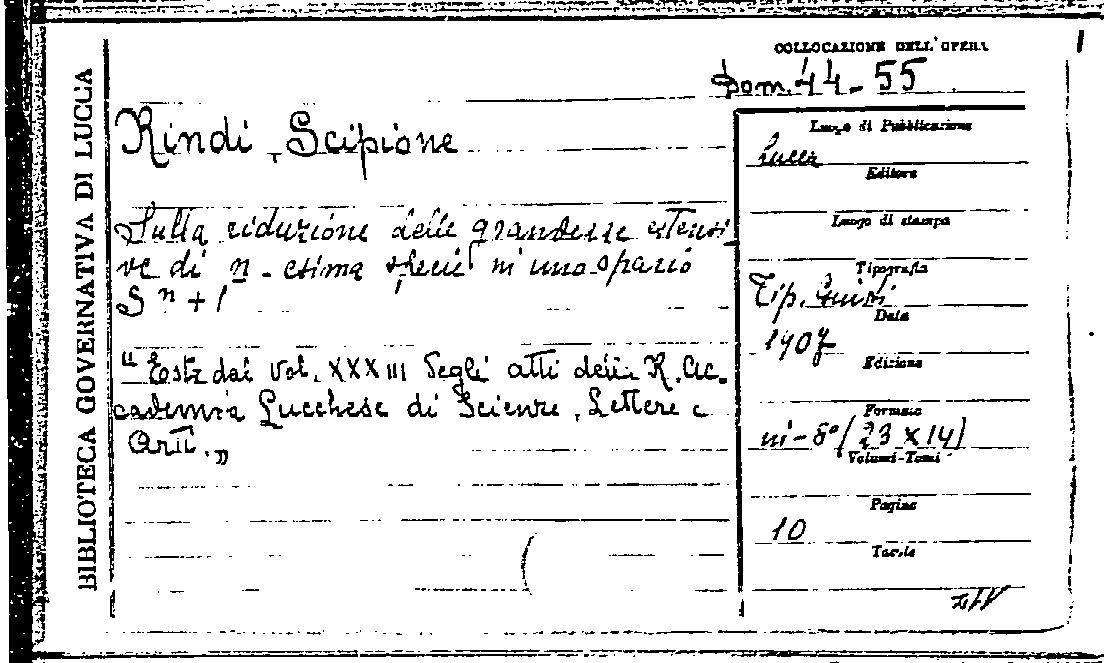 BIBLIOTECA GOVERNATIVA DI LUCCA
COLLOCAZIONE DELL'OPERA
Dom. 44 - 55
Rindi, Scipione
Sulla riduzione delle grandezze estensi
ve di n-esima specie in uno spazio
S n + 1
"Estr. dal Vol. XXXIII degli atti della R. Ac-
cademia Lucchese di Scienze, Lettere e
Arti.„
Luogo di Pubblicazione
Lucca
Editore
Luogo di stampa
Tipografia
Tip. Giusti
Data
1907
Edizione
Formato
in-8° (23 x 14)
Volumi-Tomi
Pagine
10
Tavole